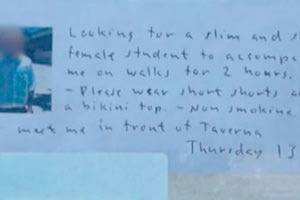 Looking for a slim and s
female student to accompa
me on walks for 2 hours.
- Please wear short shorts a
a bikini top. - Non smoking
meet me in front of Taverna
Thursday 13